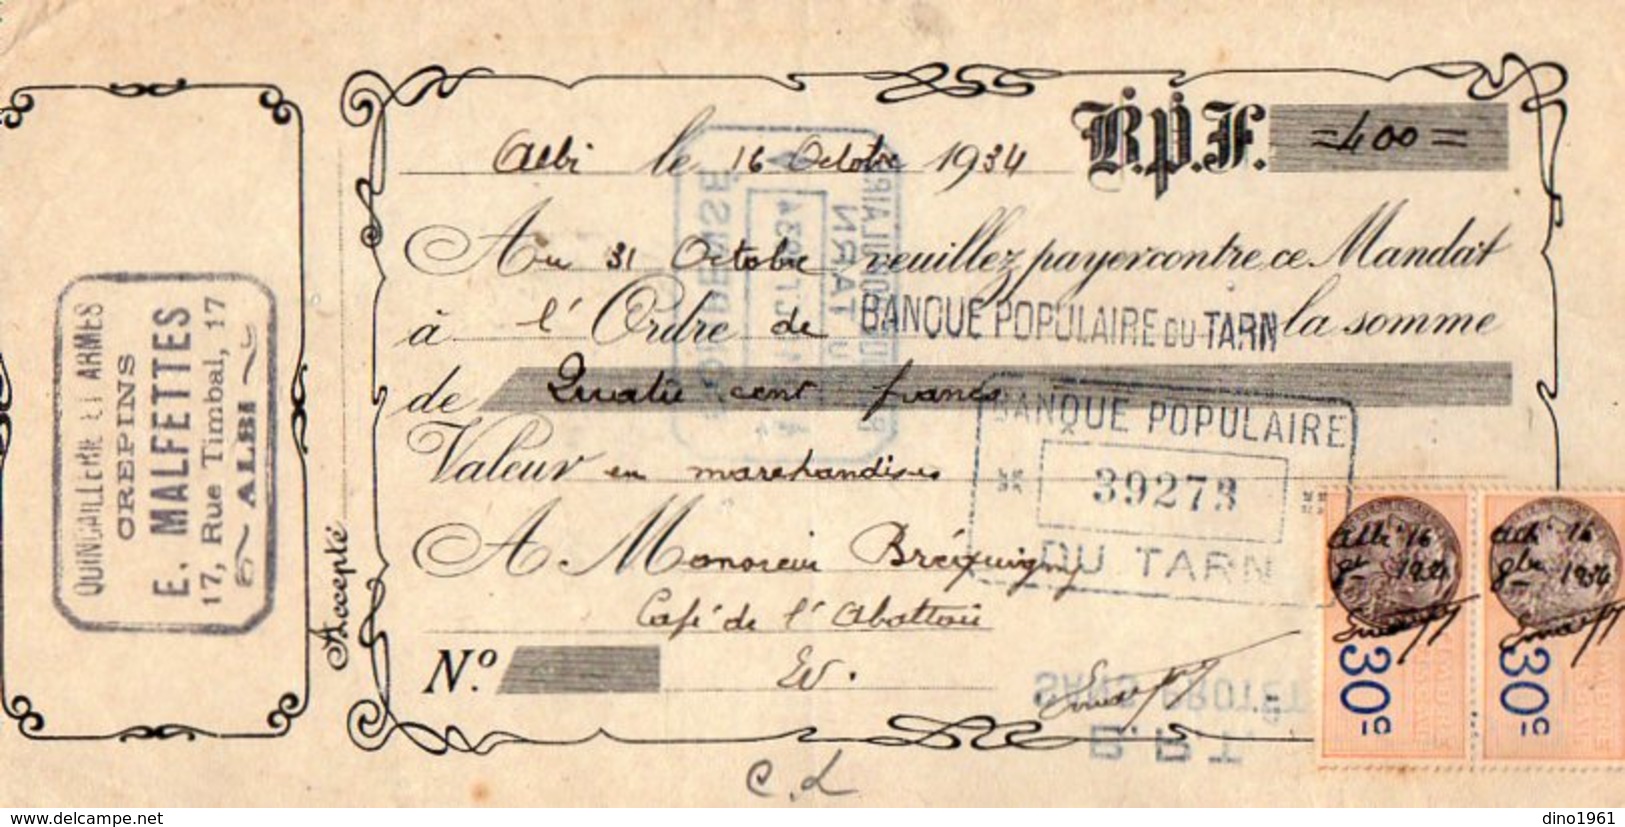 QUINCAILLERIE ET ARMES
CREPINS
E. MALFETTES
17, Rue Timbal, 17
ALBI
Accepté
Albi le 16 Octobre 1934 B.P.F. =400=
Au 31 Octobre veuillez payer contre ce Mandat
à l'Ordre de BANQUE POPULAIRE DU TARN la somme
de Quatre cent francs
Valeur en marchandises
BANQUE POPULAIRE
39273
DU TARN
A Monsieur Bréquigny
Café de l'Abattoir
No. EV.
SANS PROTÊT
B.P.T.
Albi 16
8bre 1934
30c
Albi 16
8bre 1934
30c
C.L
www.delcampe.net
dino1961